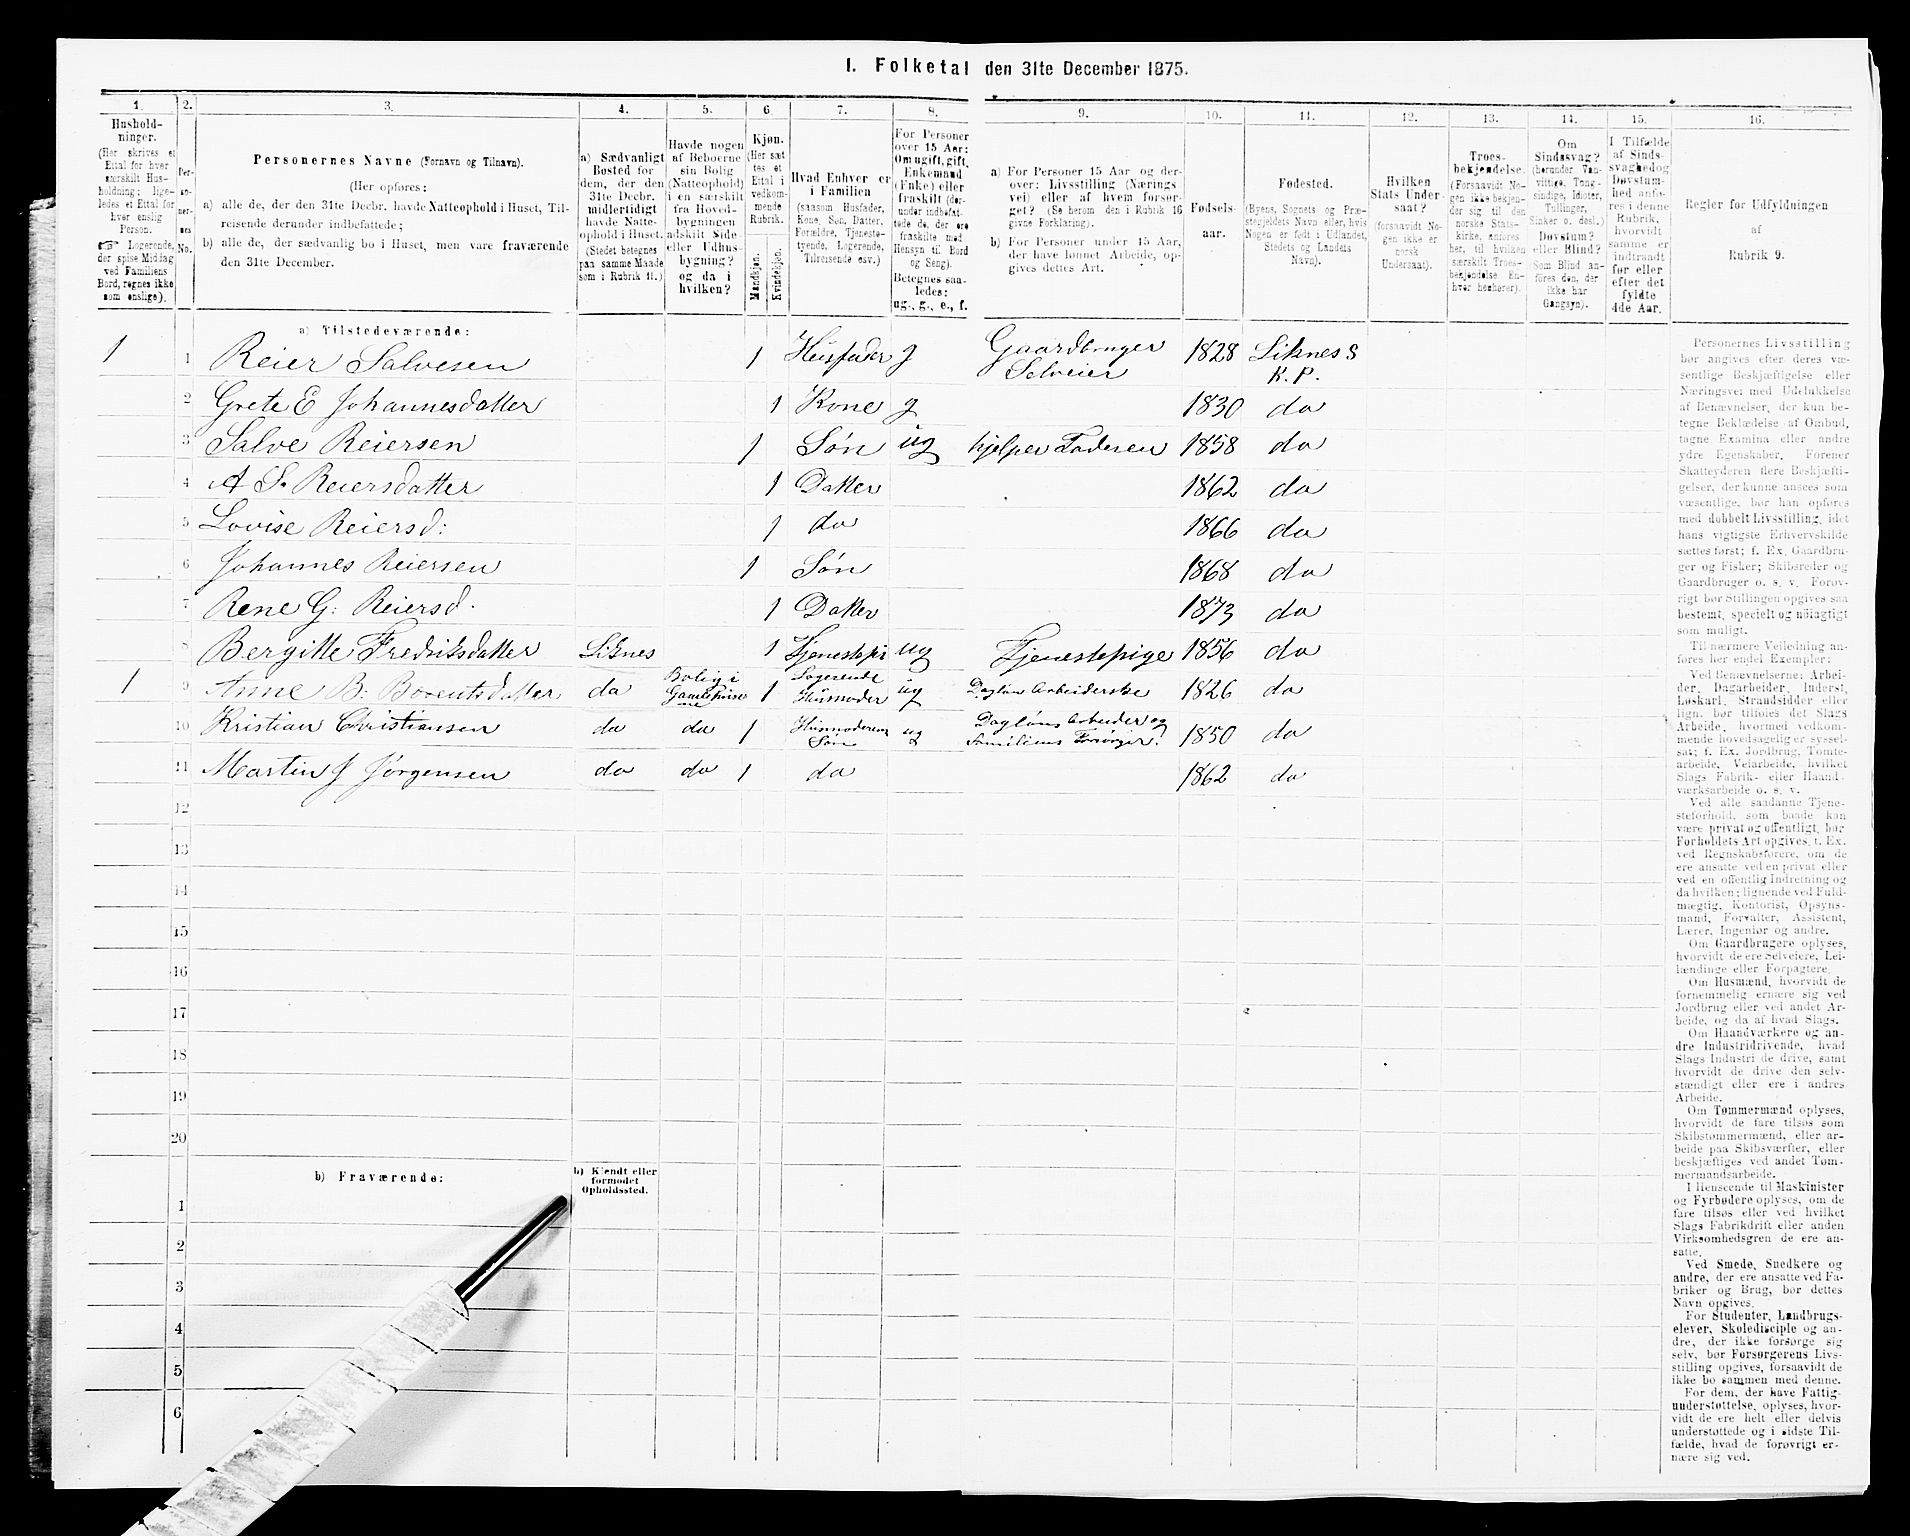 I. Folketal den 31te December 1875.
1.
2.
3.
4.
5.
6.
7.
8.
9.
10.
11.
12.
13.
14.
15.
16.
Hushold-
ninger.
(Her skrives et
Ettal for hver
særskilt Hus-
holdning; lige-
ledes et Ettal for
hver enslig
Person.
☞ Logerende,
der spise Middag
ved Familiens
Bord, regnes ikke
som enslige).
Per-
so-
ner-
nes
No.
Personernes Navne (Fornavn og Tilnavn).
(Her opføres:
a) alle de, der den 31te Decbr. havde Natteophold i Huset, Til-
reisende derunder indbefattede;
b) alle de, der sædvanlig bo i Huset, men vare fraværende
den 31te December.
a) Sædvanligt
Bosted for
dem, der den
31te Decbr.
midlertidigt
havde Natte-
ophold i Huset.
(Stedet betegnes
paa samme Maade
som i Rubrik 11.)
Havde nogen
af Beboerne
sin Bolig
(Natteophold)
i en særskilt
fra Hoved-
bygningen
adskilt Side-
eller Udhus-
bygning?
og da i
hvilken?
Kjøn.
(Her sæt-
tes et
Ettal i
vedkom-
mende
Rubrik.
Mandkjøn.
Kvindekjøn.
Hvad Enhver er
i Familien
(saasom Husfader,
Kone, Søn, Datter,
Forældre, Tjeneste-
tyende, Logerende,
Tilreisende osv.)
For Personer
over 15 Aar:
Om ugift, gift,
Enkemand
(Enke) eller
fraskilt (der-
under indbefat-
tede de, der ere
fraskilte med
Hensyn til Bord
og Seng).
Betegnes saa-
ledes:
ug., g., e., f.
a) For Personer 15 Aar og der-
over: Livsstilling (Nærings
vei) eller af hvem forsør-
get? (Se herom den i Rubrik 16
givne Forklaring).
b) For Personer under 15 Aar,
der have lønnet Arbeide, op-
gives dettes Art.
Fødsels-
aar.
Fødested.
(Byens, Sognets og Præ-
stegjeldets Navn eller, hvis
Nogen er født i Udlandet,
Stedets og Landets
Navn).
Hvilken
Stats Under-
saat?
(forsaavidt No-
gen ikke er
norsk
Undersaat).
Troes-
bekjendelse.
(Forsaavidt No-
gen ikke bekjen-
der sig til den
norske Stats-
kirke, anføres
her, til hvilken
særskilt Troes-
bekjendelse En-
hver henhører).
Om
Sindssvag?
(herunder Van-
vittige, Tung-
sindige, Idioter,
Tullinger,
Sinker o. desl.)
Døvstum?
eller Blind?
(Som Blind an-
føres den, der
ikke har
Gangsyn).
I Tilfælde
af Sinds-
svaghed og
Døvstum-
hed anfø-
res i denne
Rubrik,
hvorvidt
samme er
indtraadt
før eller
efter det
fyldte
4de Aar.
Regler for Udfyldningen
af
Rubrik 9.
a) Tilstedeværende:
1 1 Reier Salvesen 1 Husfader g Gaardbruger 1828 Liknes S
Selveier K. P.
2 Grete E Johannesdatter 1 Kone g 1830 do
3 Salve Reiersen 1 Søn ug hjelper Faderen 1858 do
4 A S. Reiersdatter 1 Datter 1862 do
5 Lovise Reiersd: 1 do 1866 do
6 Johannes Reiersen 1 Søn 1868 do
7 Rene G: Reiersd. 1 Datter 1873 do
8 Bergitte Fredriksdatter Liknes 1 Tjenestepi ug Tjenestepige 1856 do
1 9 Anne B: Berentsdatter do Bolig i 1 Logerende
Husmoder ug Dagløns Arbeiderske 1826 do
10 Kristian Christiansen do do 1 Husmoderens
Søn ug Dagløns Arbeider og
Familiens Forsørger. 1850 do
11 Martin J Jørgensen do do 1 do 1862 do
12
13
14
15
16
17
18
19
20
b) Fraværende:
b) Kjendt eller
formodet
Opholdssted.
1
2
3
4
5
6
Personernes Livsstilling
bør angives efter deres væ-
sentlige Beskjæftigelse eller
Næringsvei med Udelukkelse
af Benævnelser, der kun be-
tegne Beklædelse af Ombud,
tagne Examina eller andre
ydre Egenskaber. Forener
Skatteyderen flere Beskjæfti-
gelser, der kunne ansees som
væsentlige, bør han opføres
med dobbelt Livsstilling, idet
hans vigtigste Erhvervskilde
sættes først; f. Ex. Gaardbru-
ger og Fisker; Skibsreder og
Gaardbruger o. s. v. Forøv-
rigt bør Stillingen opgives saa
bestemt, specielt og nøiagtigt
som muligt.
Til nærmere Veiledning an-
føres her endel Exempler:
Ved Benævnelserne: Arbei-
der, Dagarbeider, Inderst,
Løskarl, Strandsidder eller
lign. bør tilføies det Slags
Arbeide, hvormed vedkom-
mende hovedsagelig er syssel-
sat; f. Ex. Jordbrug, Tomte-
arbeide, Veiarbeide, hvilket
Slags Fabrik- eller Haand-
værksarbeide o. s. v.
Ved alle saadanne Tjene-
steforhold, som baade kan
være privat og offentligt, bør
Forholdets Art opgives, t. Ex.
ved Regnskabsførere, om de
ere ansatte ved en privat eller
ved en offentlig Indretning og
da hvilken; lignende ved Fuld-
mægtig, Kontorist, Opsyns-
mand, Forvalter, Assistent,
Lærer, Ingeniør og andre.
Om Gaardbrugere oplyses,
hvorvidt de ere Selveiere, Lei-
lændinge eller Forpagtere.
Om Husmænd, hvorvidt de
fornemmelig ernære sig ved
Jordbrug eller ved andet Ar-
beide, og da af hvad Slags.
Om Haandværkere og an-
dre Industridrivende, hvad
Slags Industri de drive, samt
hvorvidt de drive den selv-
stændigt eller ere i andres
Arbeide.
Om Tømmermænd oplyses,
hvorvidt de fare tilsøs som
Skibstømmermænd, eller ar-
beide paa Skibsværfter, eller
beskjæftiges ved andet Tøm-
mermandsarbeide.
I Henseende til Maskinister
og Fyrbødere oplyses, om de
fare tilsøs eller ved hvilket
Slags Fabrikdrift eller anden
Virksomhedsgren de ere an-
satte.
Ved Smede, Snedkere og
andre, der ere ansatte ved Fa-
briker og Brug, bør dettes
Navn opgives.
For Studenter, Landbrugs-
elever, Skoledisciple og an-
dre, der ikke forsørge sig
selv, bør Forsørgerens Livs-
stilling opgives, forsaavidt de
ikke bo sammen med denne.
For dem, der have Fattig-
understøttelse, oplyses, hvor-
vidt de ere helt eller delvis
understøttede og i sidste Til-
fælde, hvad de forøvrigt er-
nære sig ved.